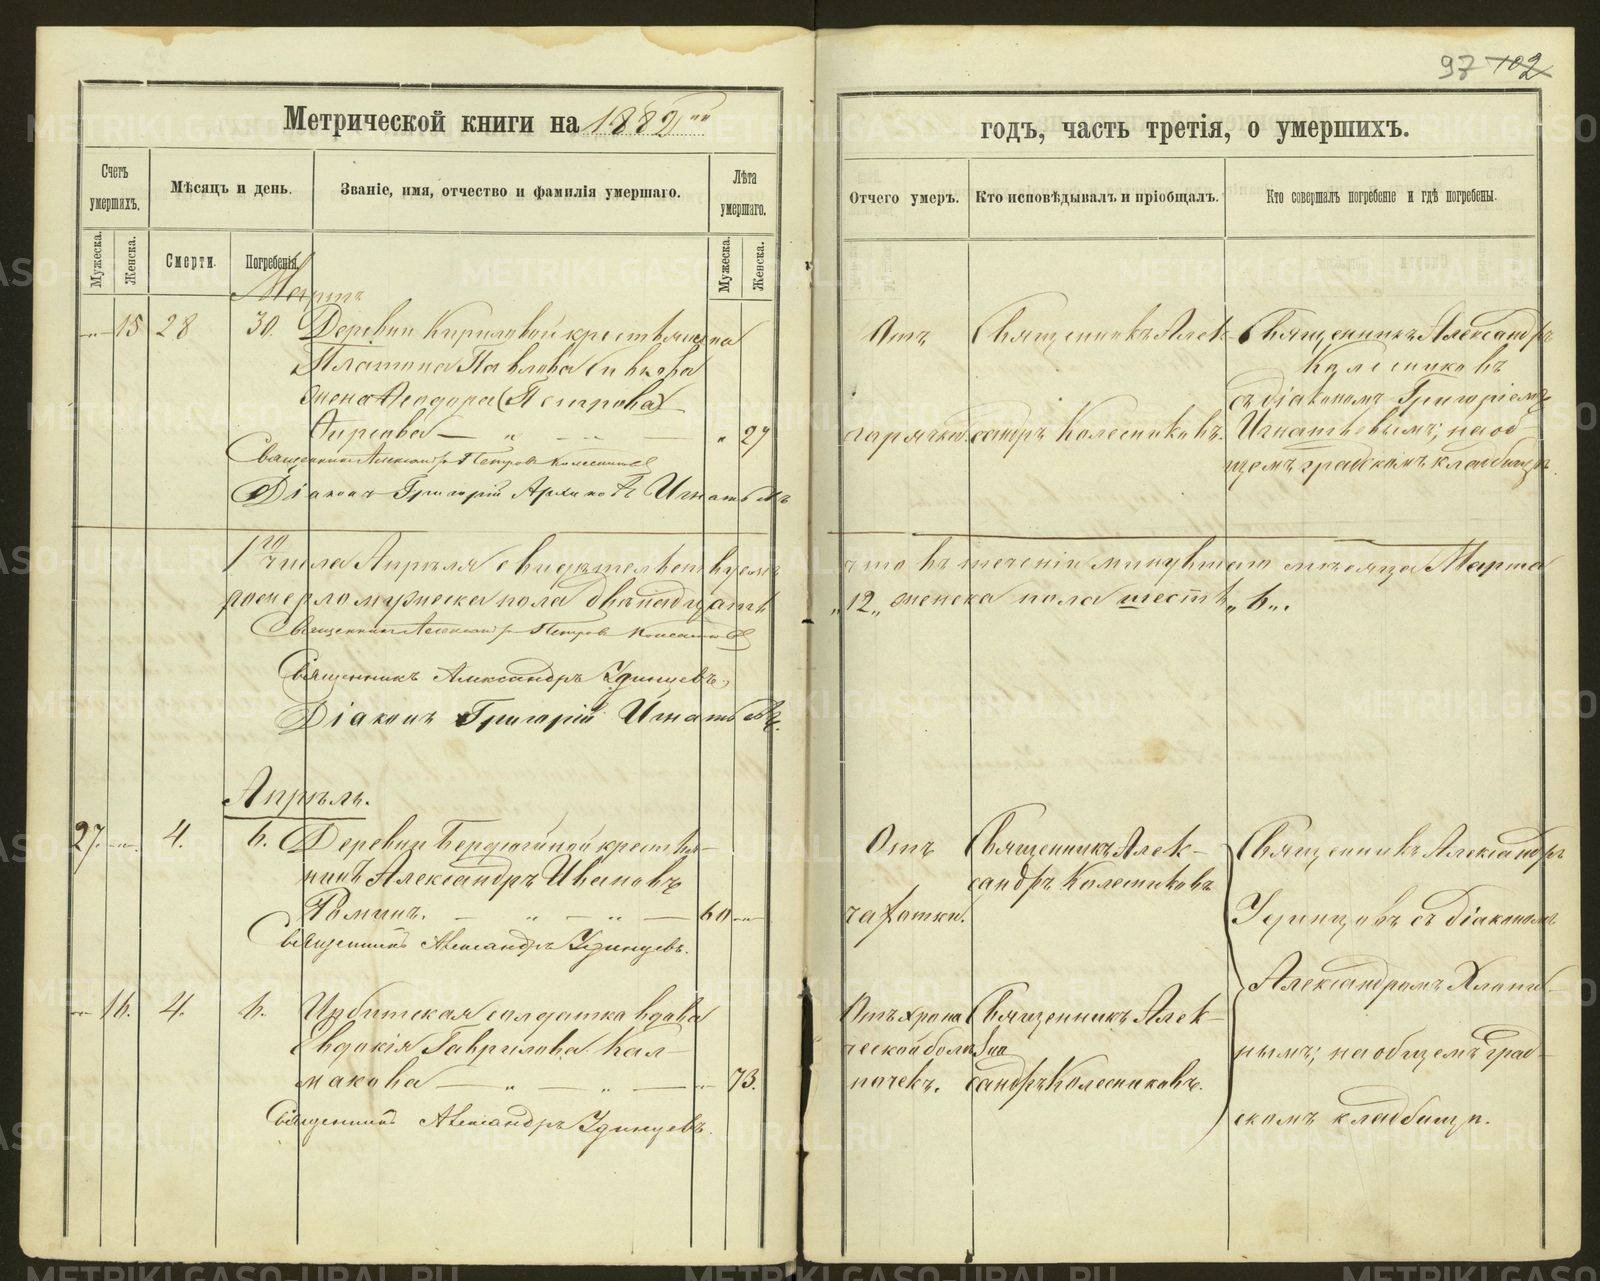 97 102
Метрической книги на 1882 ой
годъ, часть третія, о умершихъ.
Счетъ умершихъ.
Мѣсяцъ и день.
Званіе, имя, отчество и фамилія умершаго.
Лѣта умершаго.
Отчего умеръ.
Кто исповѣдывалъ и пріобщалъ.
Кто совершалъ погребеніе и гдѣ погребены.
Мужеска.
Женска.
Смерти.
Погребенія.
Мужеска.
Женска.
Мартъ
15 28 30. Деревни Кириловой крестьянина
Платона Павлова
жена Ѳеодора (Петрова)
27
Священникъ Александръ Петровъ Колесниковъ
Діаконъ Григорій Игнатьевъ
Отъ
горячки.
Священникъ Алек-
сандръ Колесниковъ.
Священникъ Александръ
Колесниковъ
съ діакономъ Григоріемъ
Игнатьевымъ; на об-
щемъ градскомъ кладбищѣ.
1 го числа Апрѣля свидѣтельствуемъ что въ теченіи минувшаго мѣсяца Марта
померло мужеска пола двѣнадцать „12„ женска пола шесть „6„.
Священникъ Александръ Петровъ Колесниковъ
Священникъ Александръ Удинцевъ.
Діаконъ Григорій Игнатьевъ.
Апрѣль.
27. 4. 6. Деревни Бердюгиной крестья-
нинъ Александръ Ивановъ
Фоминъ. 60
Священникъ Александръ Удинцевъ.
Отъ
чахотки.
Священникъ Алек-
сандръ Колесниковъ
Священникъ Александръ
Удинцовъ съ діакономъ
Александромъ Хлопи-
нымъ; на общемъ град-
скомъ кладбищѣ.
16. 4. 6. Ирбитская солдатка вдова
Евдокія Гаврилова Кал-
макова 73.
Священникъ Александръ Удинцевъ.
Отъ хрони
ческой болѣзни
почекъ.
Священникъ Алек-
сандръ Колесниковъ.
METRIKI.GASO-URAL.RU